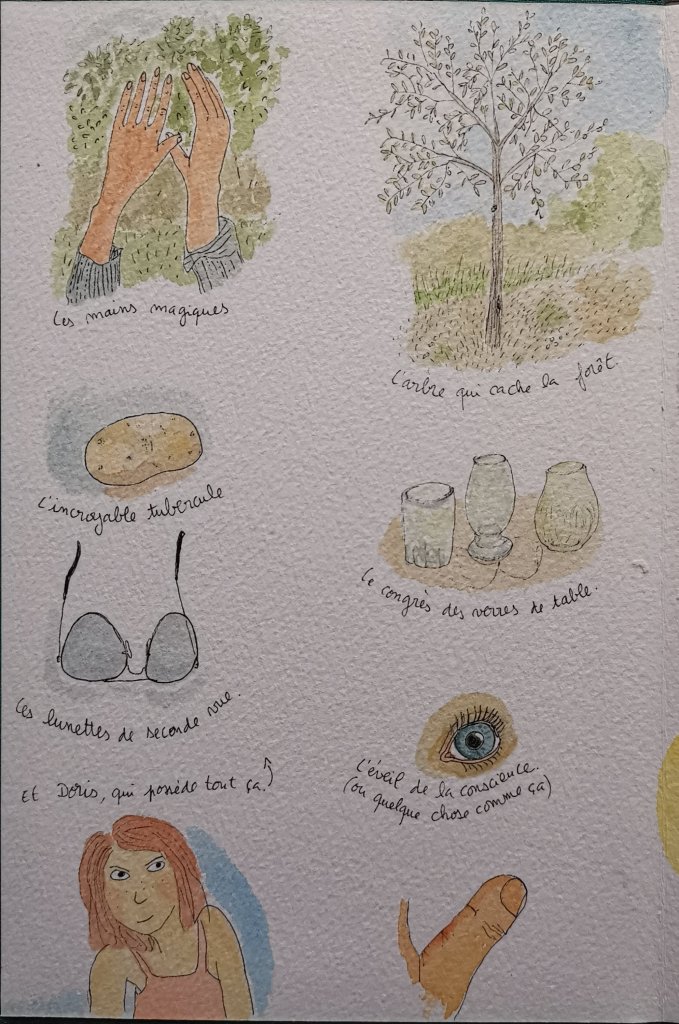 Les mains magiques
L'arbre qui cache la forêt.
L'incroyable tubercule
Le congrès des verres de table.
Les lunettes de seconde vue.
L'éveil de la conscience.
(ou quelque chose comme ça)
Et Doris, qui possède tout ça.